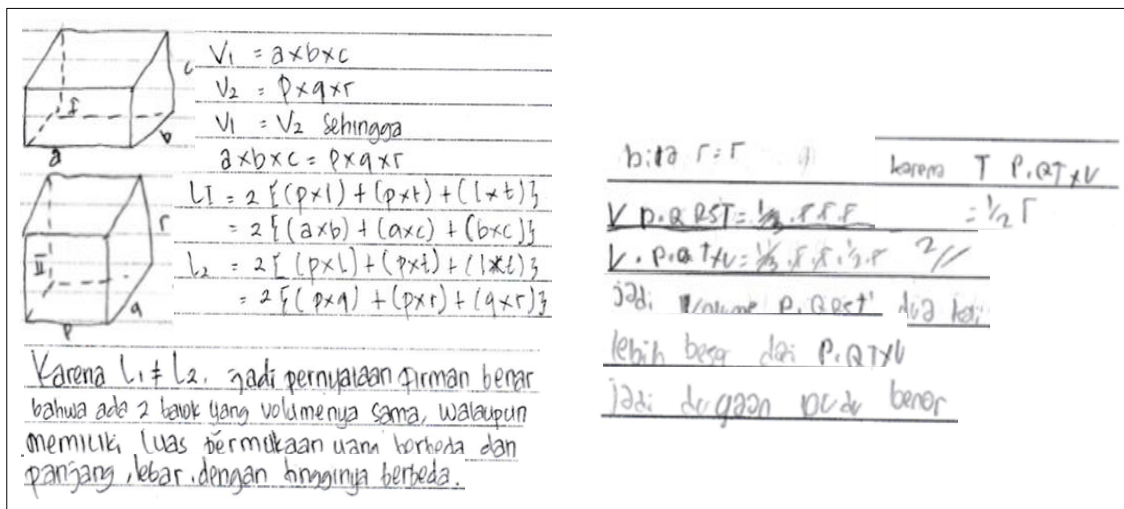 I
a
b
c
V1 = a×b×c
V2 = p×q×r
V1 = V2 sehingga
a×b×c = p×q×r
II
p
q
r
LI = 2 {(p×l) + (p×t) + (l×t)}
= 2 {(a×b) + (a×c) + (b×c)}
L2 = 2 { (p×l) + (p×t) + (l×t)}
= 2 {(p×q) + (p×r) + (q×r)}
Karena L1 ≠ L2. jadi pernyataan firman benar
bahwa ada 2 balok yang volumenya sama, walaupun
memiliki luas permukaan yang berbeda dan
panjang, lebar, dengan tingginya berbeda.
bila r = r
karena T P.QTXU
= 1/2 r
V P.QRST = 1/3 . r r r
V. P.QTXU = 1/3 . r . r . 1/2 . r 2//
jadi Volume P.QRST dua kali
lebih besar dari P.QTXU
jadi dugaan benar